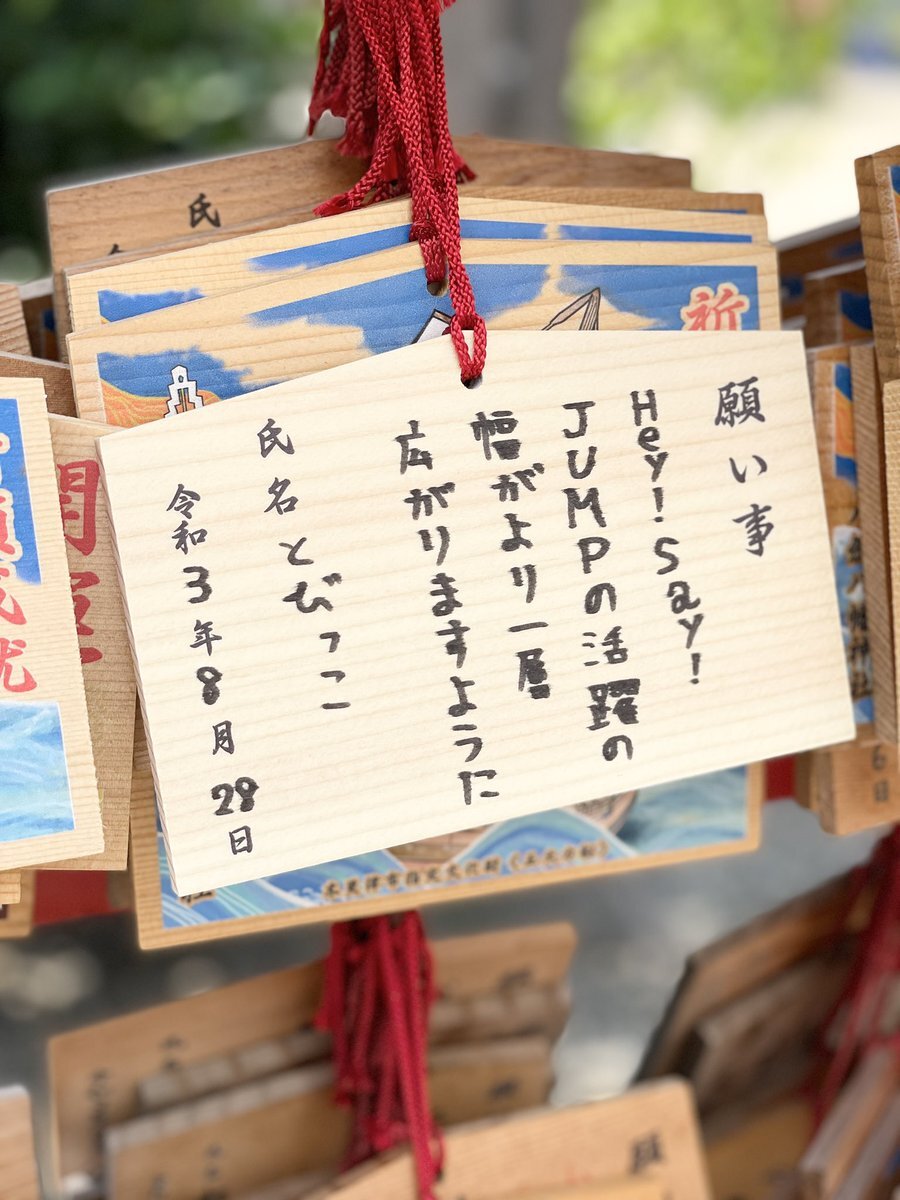 願い事
Hey! Say!
JUMPの活躍の
幅がより一層
広がりますように
氏名とびっこ
令和3年8月28日
氏
祈